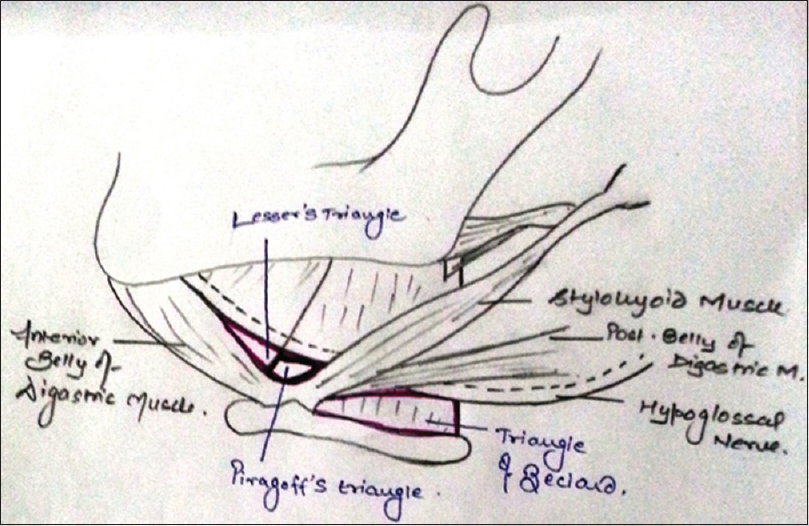 Lesser's Triangle
Stylohyoid Muscle
Post. Belly of
Digastric M.
Anterior
Belly of
Digastric Muscle.
Hypoglossal
Nerve.
Triangle
of Beclard.
Piragoff's triangle.